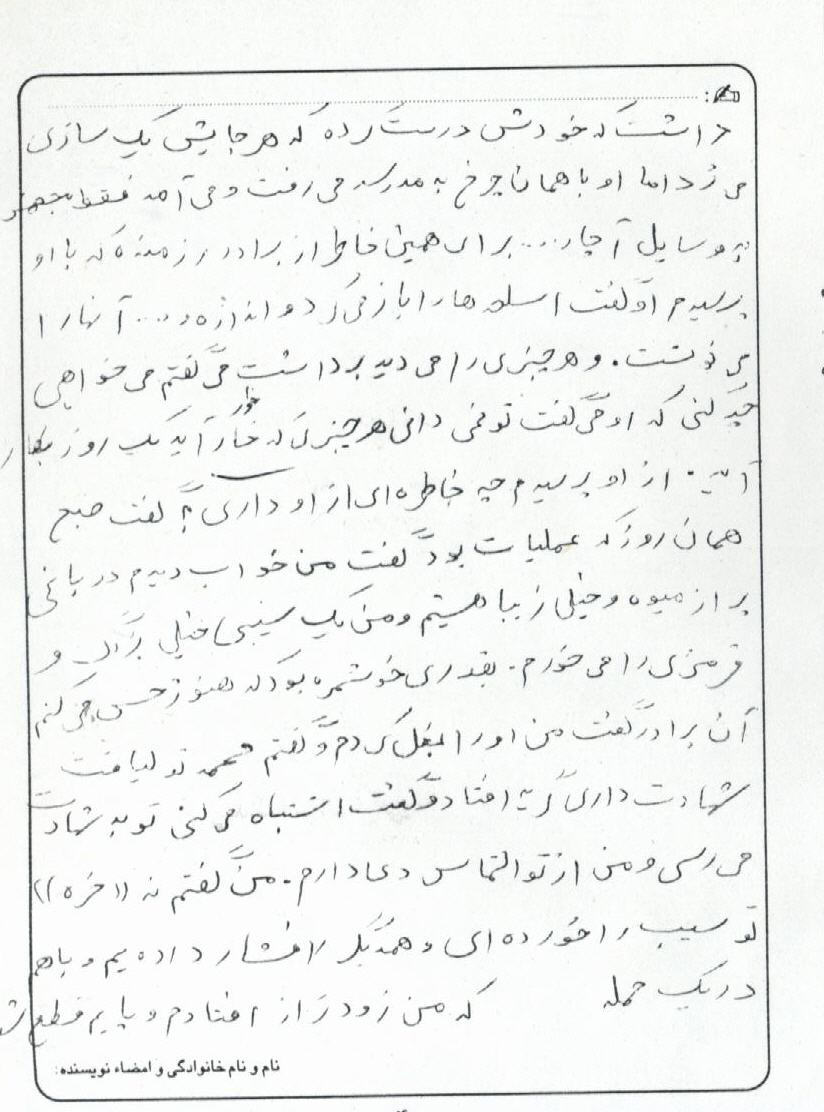 داشت که خودش درست کرده که هر جایش یک سازی
می زد اما او با همان چرخ به مدرسه می رفت و می آمد فقط مجهز
به وسایل آچار... برای همین خاطر از برادر رزمنده که با او
پرسیدم او گفت اسلحه ها را باز می کرد و اندازه و... آنها را
می نوشت. و هر چیزی را می دید برداشت می گفتم می خواهی
چه کنی که او می گفت تو نمی دانی هر چیزی که خوار آید یک روز بکار
آید. از او پرسیدم چه خاطره ای از او داری؟ گفت صبح
همان روز که عملیات بود گفت من خواب دیدم در باغی
پر از میوه و خیلی زیبا هستم و من یک سیبی خیلی بزرگ و
قرمزی را می خورم. بقدری خوشمزه بود که هنوز حس می کنم
آن برادر گفت من او را بغل کردم و گفتم محمد تو لیاقت
شهادت داری گریه افتاد و گفت اشتباه می کنی تو به شهادت
می رسی و من از تو التماس دعا دارم. من گفتم نه ((مزه))
تو سیب را خورده ای و همدیگر را فشار داده یم و با هم
در یک حمله که من زودتر از افتادم و پایم قطع
نام و نام خانوادگی و امضاء نویسنده: